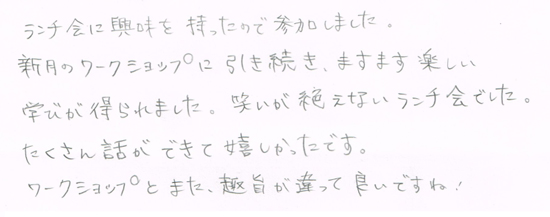 ランチ会に興味を持ったので参加しました。
新月のワークショップに引き続き、ますます楽しい
学びが得られました。笑いが絶えないランチ会でした。
たくさん話ができて嬉しかったです。
ワークショップとまた、趣旨が違って良いですね!